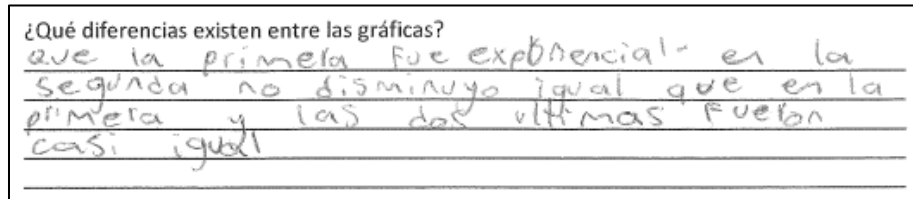 ¿Qué diferencias existen entre las gráficas?
Que la primera fue exponencial- en la
segunda no disminuyo igual que en la
primera y las dos ultimas fueron
casi igual